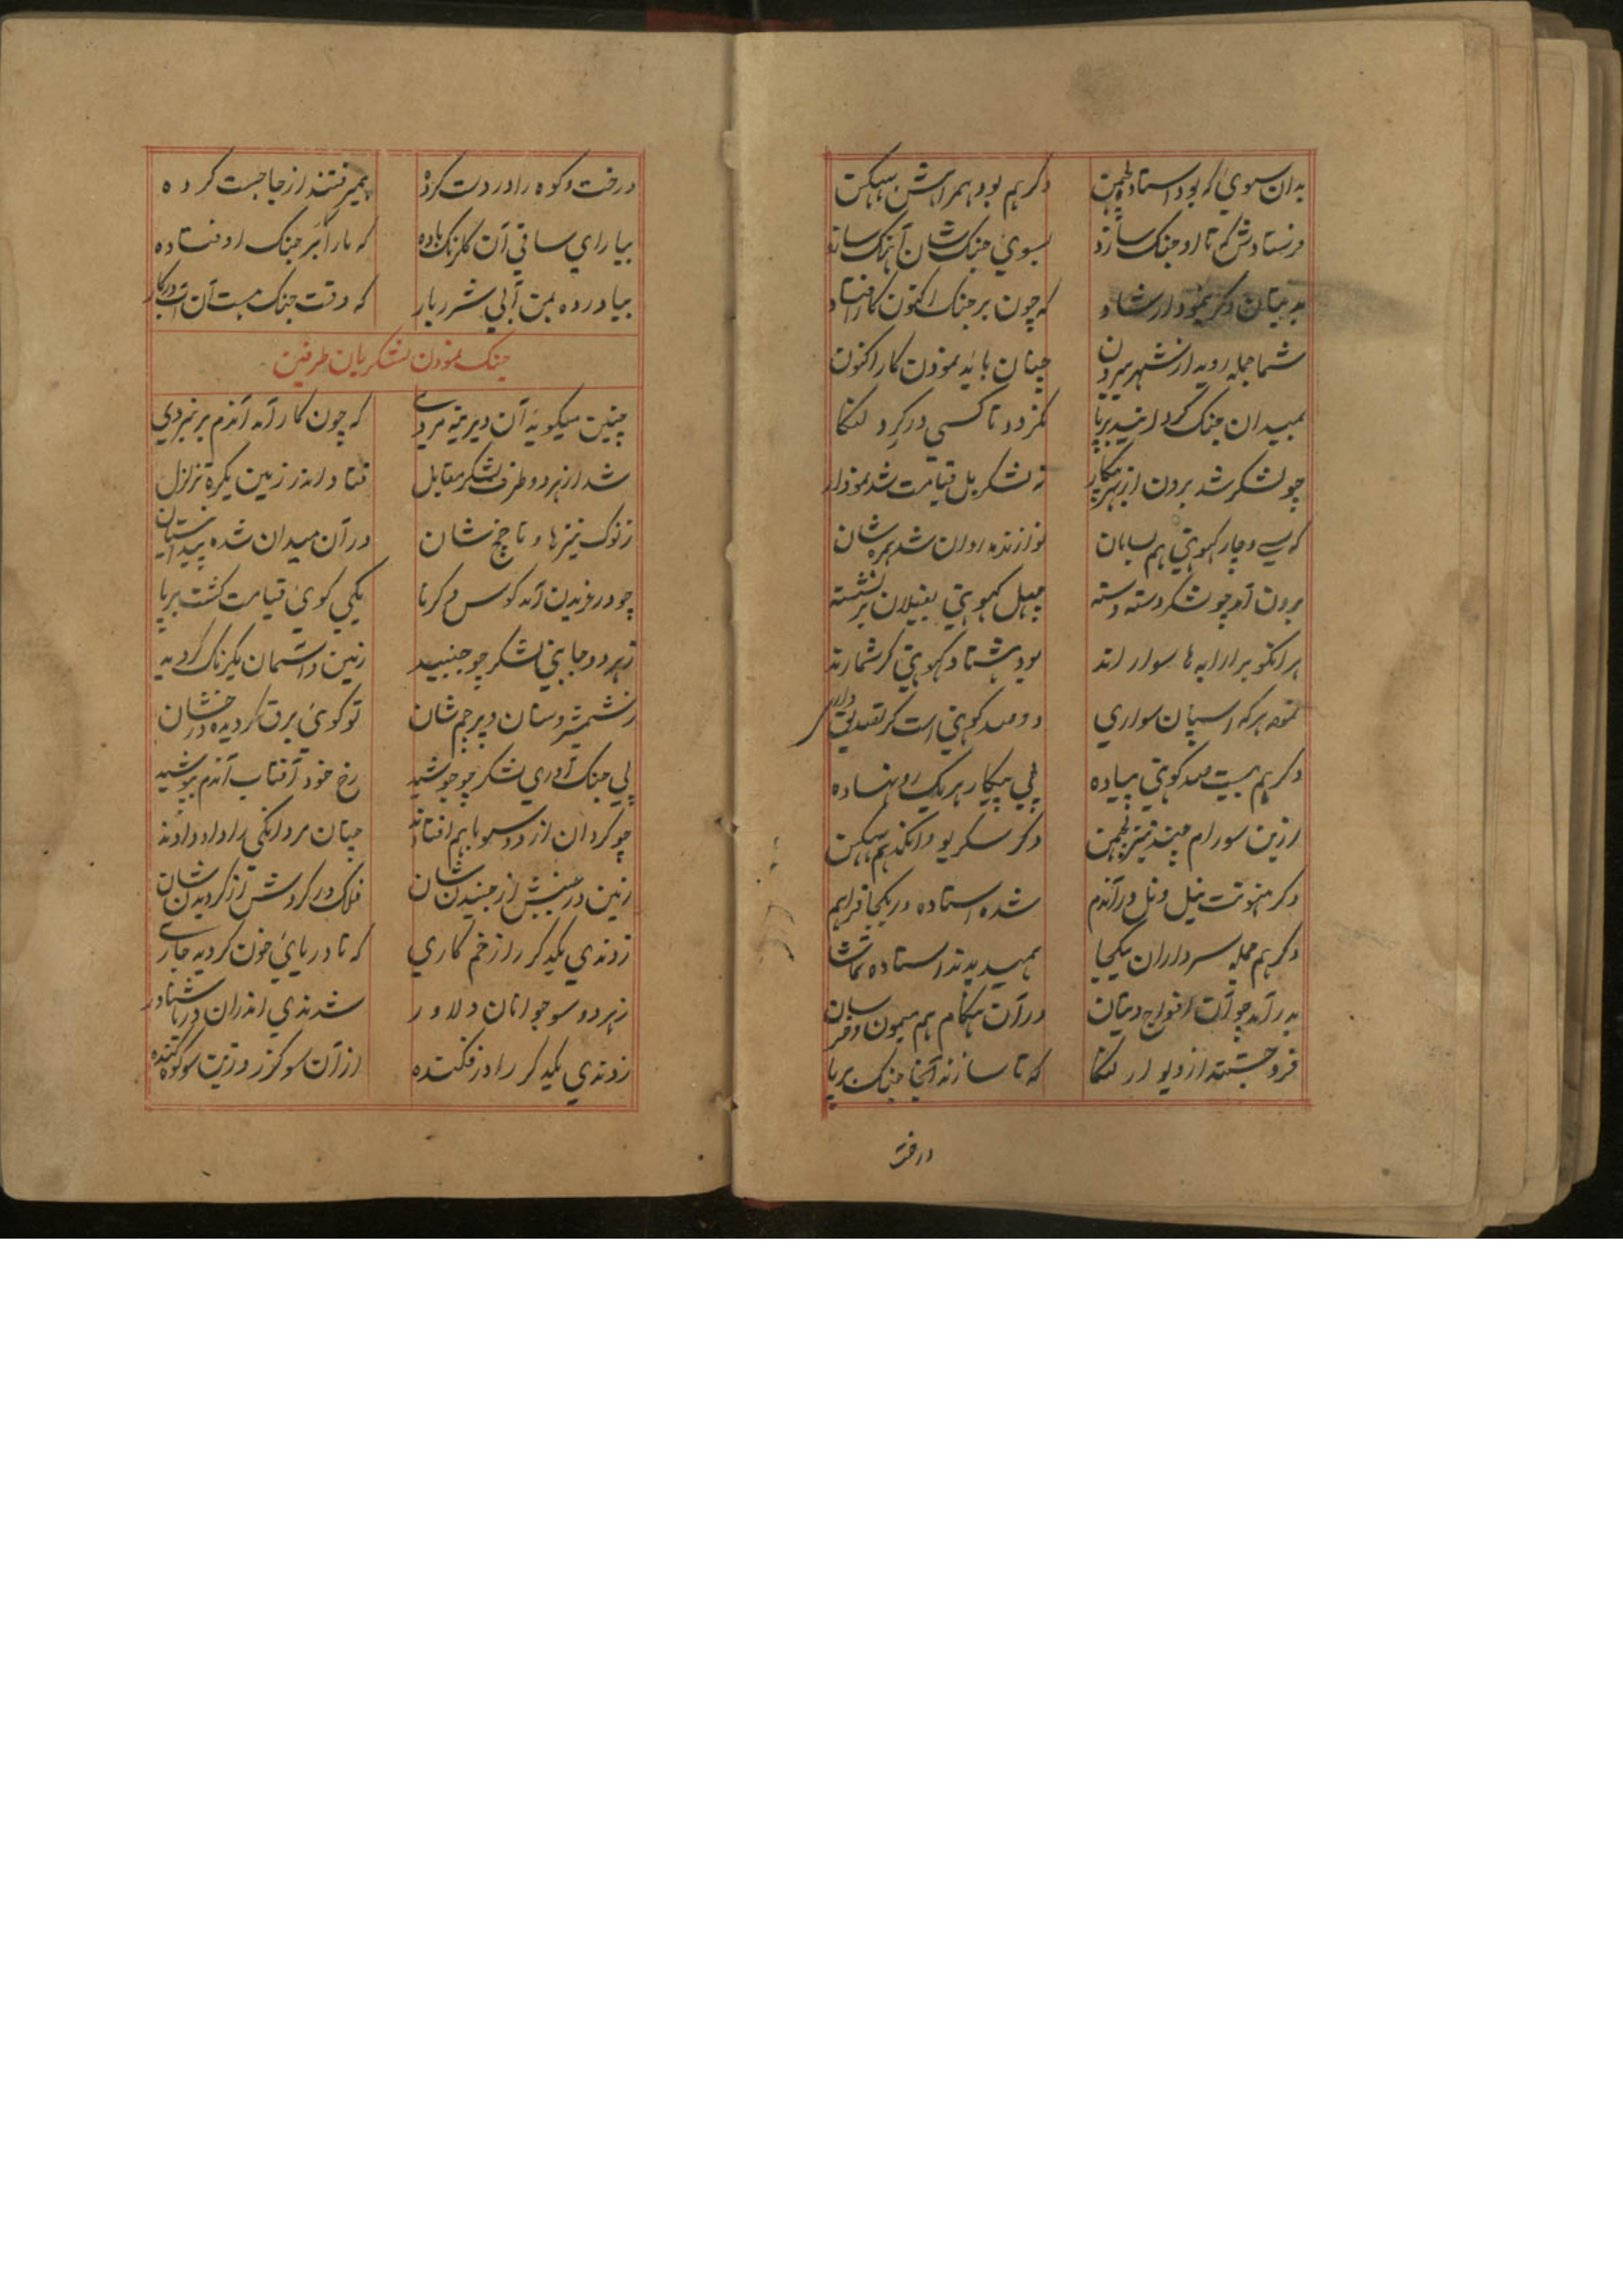 بدان سوی که بود استاده لچمن دگر هم بود همراهش بهبیکن
فرستادش که تا او جنک سازد بسوی جنک شان آهنک سازد
به دیتان دگر بنمود ارشاد که چون بر جنک اکنون کار افتاد
شما جمله روید از شهر بیرون چنان باید نمودن کار اکنون
بمیدان جنک کردانید برپا نکردد تا کسی در کرد لنکا
چو لشکر شد برون از بهر پیکار نه لشکر بل قیامت شد نمودار
که سی و چار کهوهنی هم بسامان نوازنده روان شد همره شان
برون آمد چو لشکر دسته دسته چهل کهوهنی بفیلان برنشسته
هر انکو بر ارابه ها سوارند بود هشتاد کهوهنی کر شمارند
هر که اسپان سواری دو صد کوهنی است کر تصدیق داری
دگر هم بیست صد کوهنی پیاده پی پیکار هر یک رو نهاده
ازین سو رام چند و نیز لچمن دگر سکریو و انکد هم بهبیکن
دگر هنونت نیل و نل در آندم شده استاده در یکجا فراهم
دگر هم جمله سرداران یکجا همیدیدند استاده تماشا
به در آمد چو آن افواج دیتان در آن هنکام هم میمون و خرسان
فرو جستند از دیوار لنکا که تا سازند آنجا جنک برپا
درخت
درخت و کوه را در دست کرده بمیرفتند از جا جست کرده
بیا رای ساقی آن کلرنک باده که ما را بر جنک اوفتاده
بیا در ده بمن آبی شرربار که وقت جنک هست آن آب درکار
جنک نمودن لشکریان طرفین
چنین میکوید آن دیرینه مردی که چون کار آمد آندم بر نبردی
شد از هر دو طرف لشکر مقابل فتاد اندر زمین یکره تزلزل
ز نوک نیزها و ناچخ شان در آن میدان شده پیدا نیستان
چو در غریدن آمد کوس و کرنا یکی کوی قیامت کشت برپا
ز هر دو جانبی لشکر چو جنبید زمین و آسمان یکرنک کردید
ز شمشیر و سنان و پرچم شان تو کوی برق کردیده درخشان
پی جنک آوری لشکر چو جوشید رخ خود آفتاب آندم بپوشید
چو کردان از دو سو باهم افتادند چنان مردانکی را داد دادند
زمین در جنبش از جنبیدن شان فلک در کردش از کردیدن شان
زدندی یکدیکر را زخم کاری که تا دریای خون کردید جاری
ز هر دو سو جوانان دلاور شدندی اندران دریا شناور
زدندی یکدیکر را در فکنده از آن سو کرز و زین سو کوه کنده